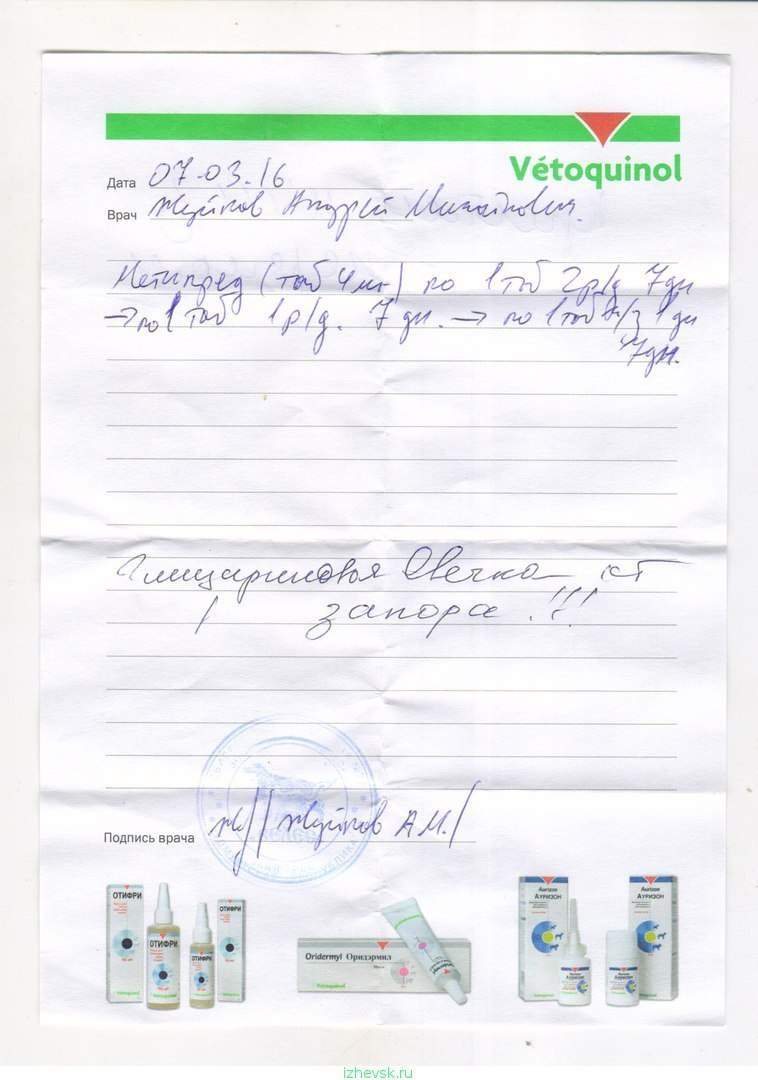 Vétoquinol
Дата 07.03.16
Врач Жуйков Андрей Михайлович.
Метипред (таб 4 мг) по 1 таб 2р/д 7дн
→ по 1 таб 1р/д. 7 дн. → по 1 таб ч/з 1 дн
7дн.
Глицериновая свечка от
запора !!!
Подпись врача Жуйков А.М.
ОТИФРИ
ОТИФРИ
ОТИФРИ
ОТИФРИ
Vetoquinol
Oridermyl Оридермил
Vetoquinol
Aurizon
Ауризон
Aurizon
Ауризон
izhevsk.ru